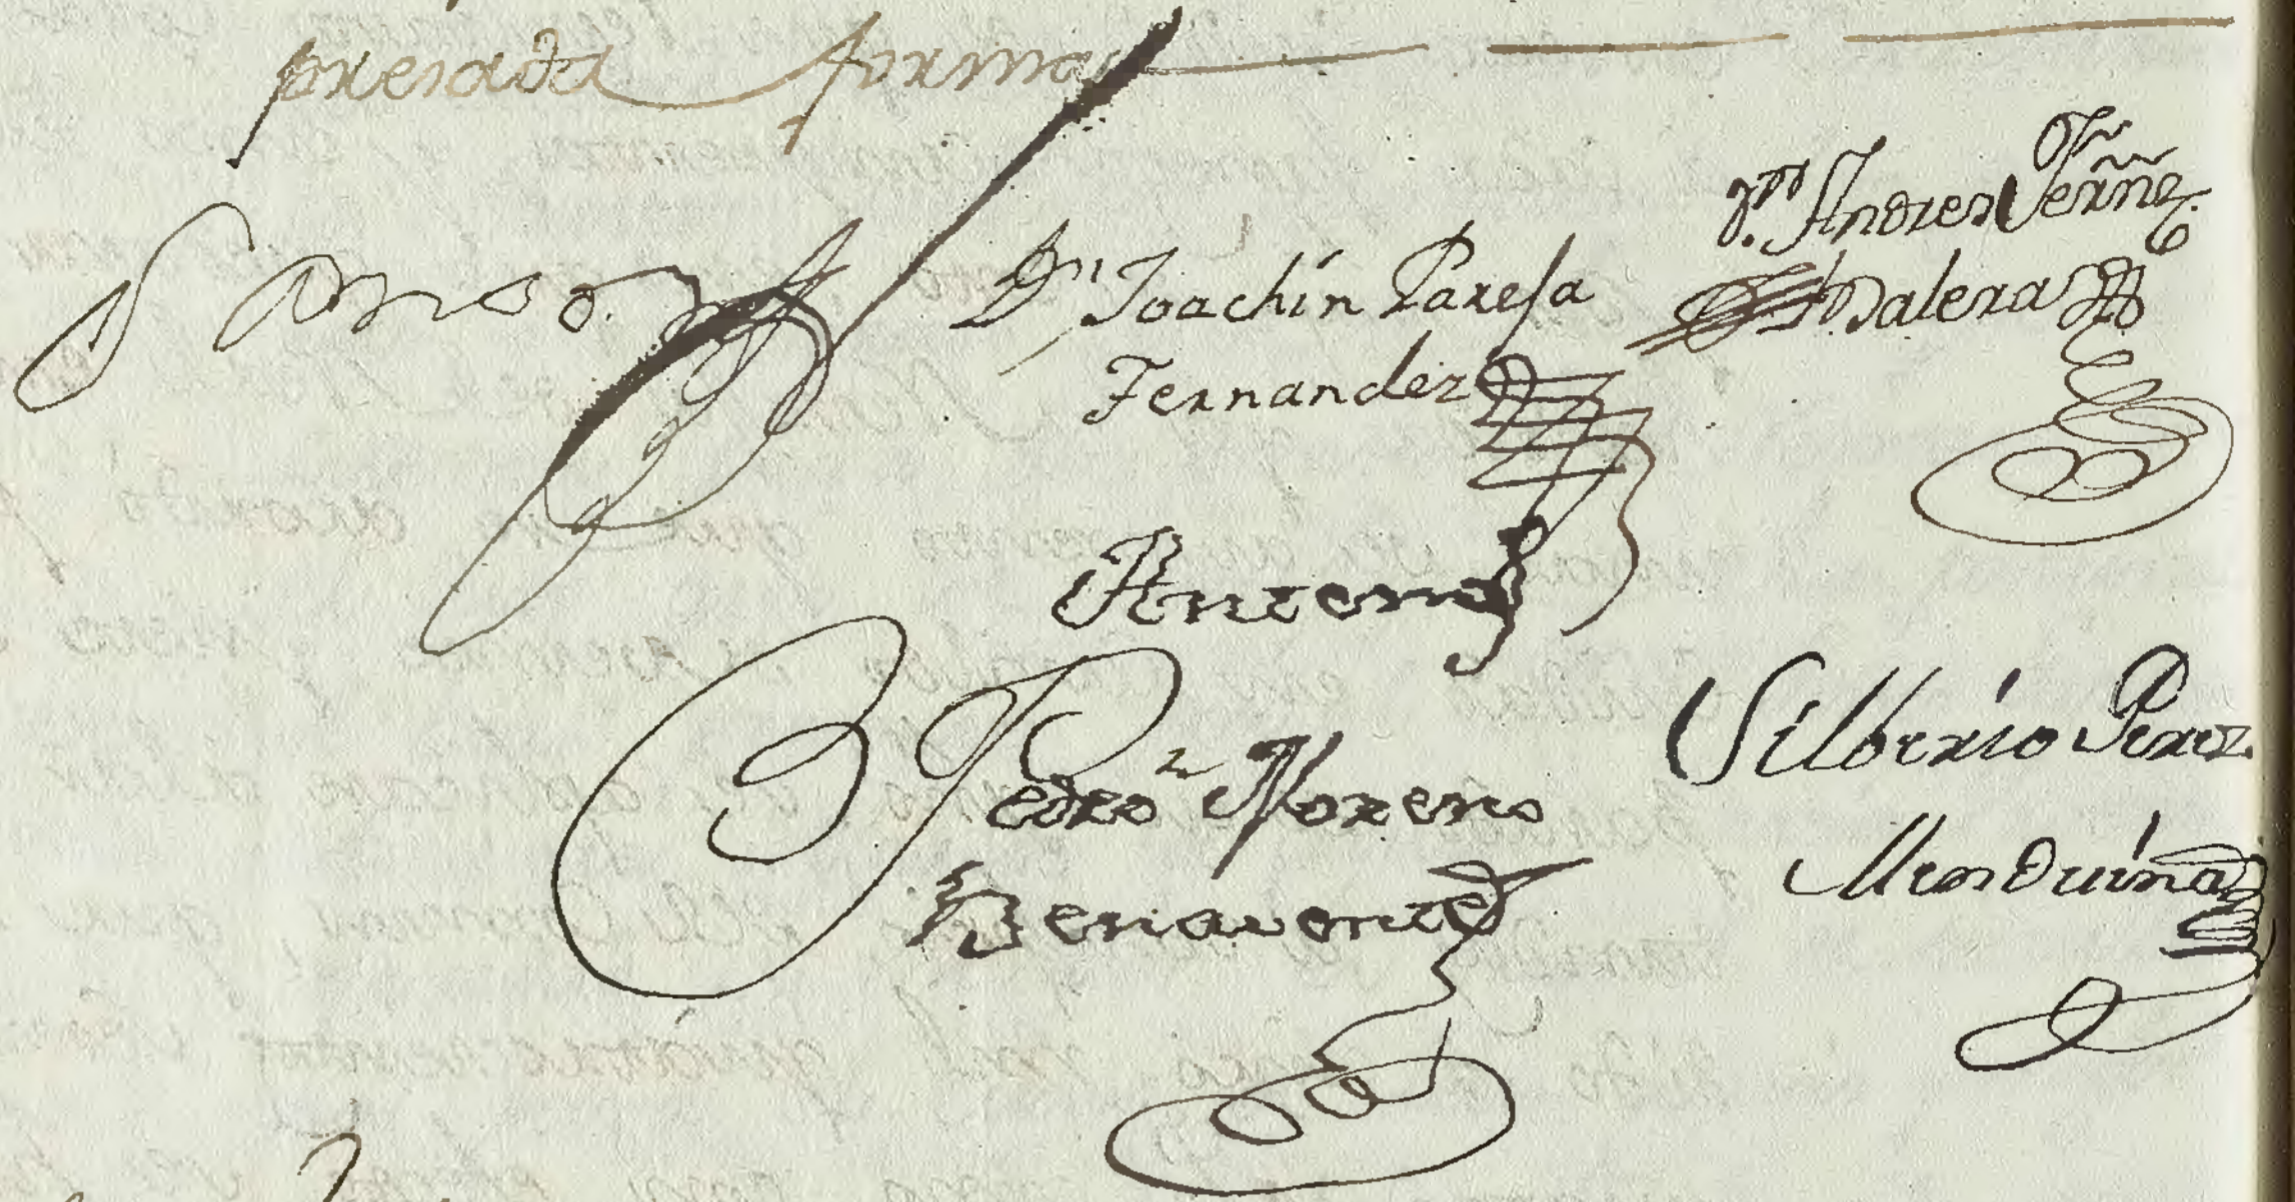 presada forma
Dn Joachin Pareja
Fernandez
Dn Andres Fernz
Valera
Antemi
Pedro Moreno
Benavente
Silberio Perez
Menduiña